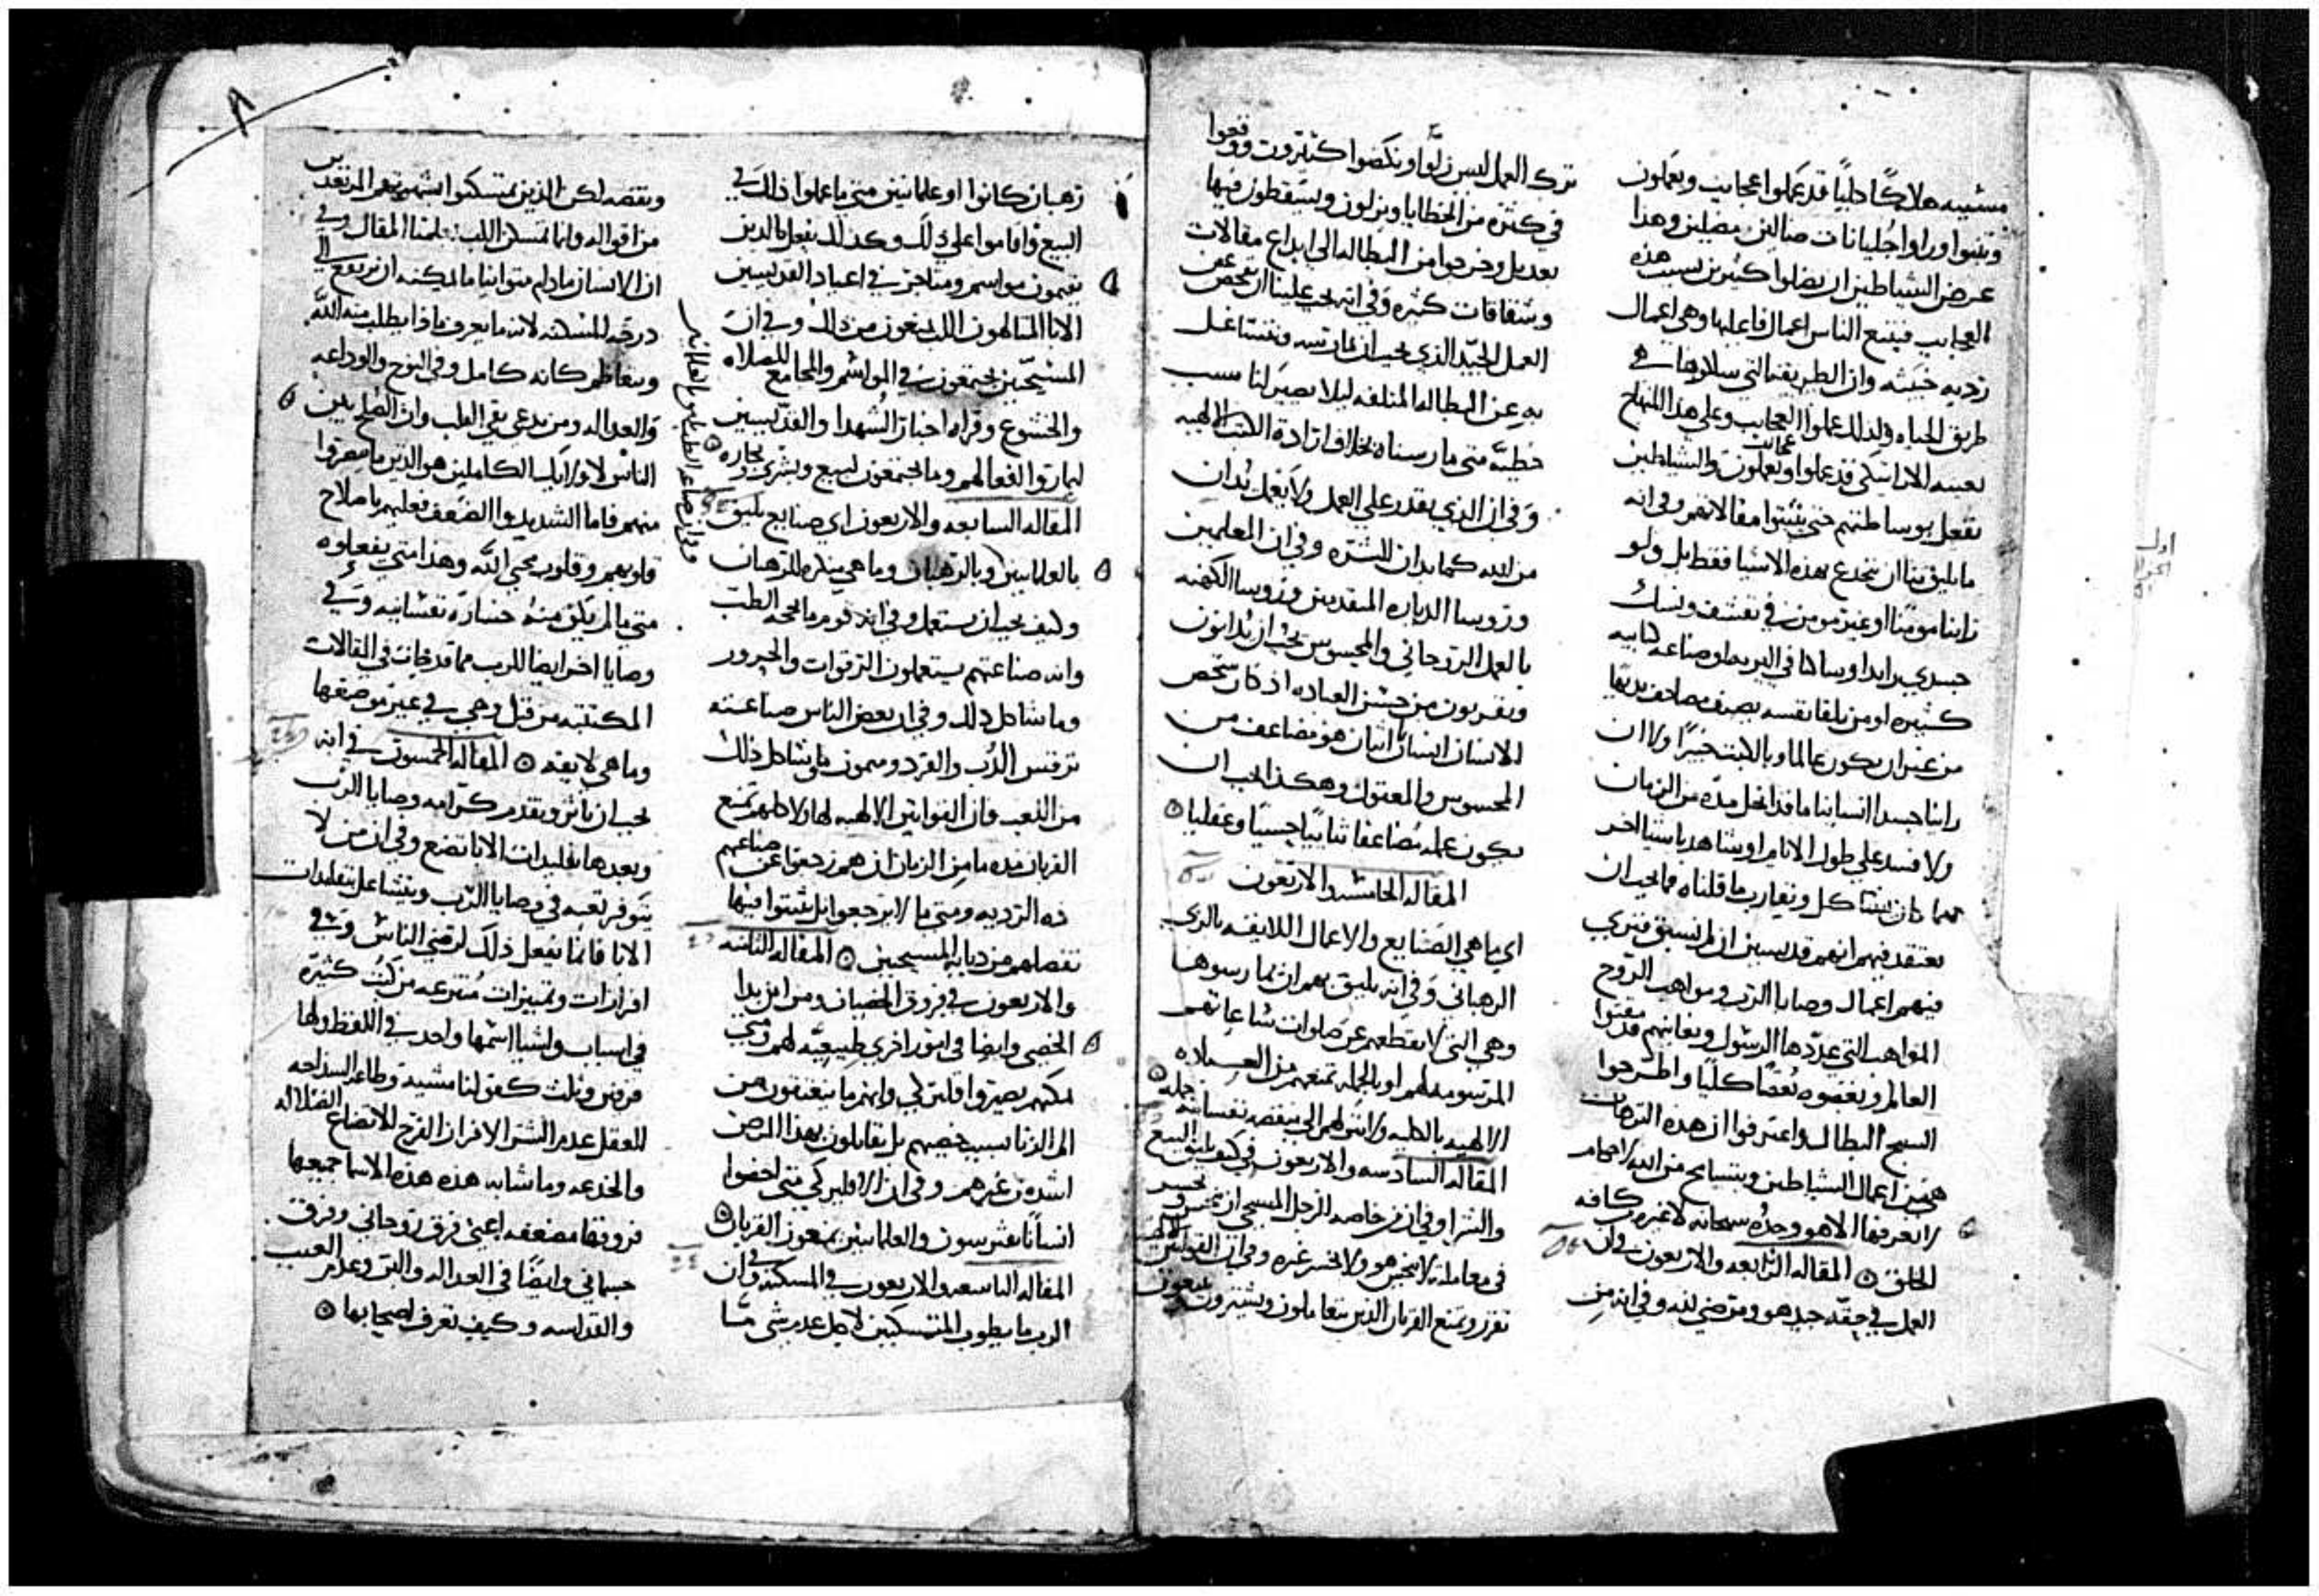 مشيبه هلاكًا كليًا قد عملوا عجايب ويعملون
وتنبوا وراوا جليانات ضالين مضلين وهذا
غرض الشياطين ان يضلوا كثيرين بسبب هذه
العجايب فيتبع الناس اعمال فاعليها وهي اعمال
رديه خبيثه وان الطريقه التي سلكوها هي
طريق الحياه ولذلك عملوا العجايب وعلى هذا المنهاج
بعينه الاراتيكى قد عملوا ويعملون والشياطين
تفعل بوساطتهم حتى يثبتوا مقالاتهم وفي انه
ما يليق بنا ان ننخدع بهذه الاشيا فقط بل ولو
راينا مومنًا او غير مومن في تقشف ونسك
جسدي زايد او ساكنا في البريه او صناعه كتابيه
كثيره او من تلقا نفسه يصنف مصاحف
من غير ان يكون عالما وبالكتب خبيرًا ولا ان
راينا جسدا انسانيا ما قد انحل مده من الزمان
ولا فسد على طول الايام او نشاهد باشيا اخر
مهما كان يشاكل ويقارب ما قلناه فما يجب ان
نعتقد فيهم انهم قديسين ان لم نسبق فنري
فيهم اعمال وصايا الرب ومواهب الروح
المواهب التي عددها الرسول ونعاينهم قد مقتوا
العالم وبغضوه بغضًا كليًا واطرحوا
السبح البطال واعترفوا ان هذه الترهات
هي من اعمال الشياطين وبتسامح من الله لاحكام
لا يعرفها الا هو وحده سبحانه لا غير من كافه
الخلق ٥ المقاله الرابعه والاربعون في ان
العمل في حقه جيد هو ومرضي لله وفي انه من
ترك العمل ليس زلوا ونكصوا كثيرون ووقعوا
في كثره من الخطايا ويزلون ويسقطون فيها
بعد بل وخرجوا من البطاله الى ابداع مقالات
وشقاقات كثيره وفي انه يجب علينا ان نفحص عن
العمل الجيد الذي يجب ان نمارسه ونتشاغل
به عن البطاله المتلفه ليلا يصير لنا سبب
خطيه متى مارسناه بخلاف ارادة الكتب الالهيه
وفي ان الذي يقدر على العمل ولا يعمل يدان
من الله كما يدان للشره وفي ان المعلمين
وروسا الدياره المتقدمين وروسا الكهنه
بالعمل الروحاني والمحسوس يجب ان يدانون
ويقربون من حسن العباده اذ كان شخص
الانسان انسانًا اثنان هو مضاعف من
المحسوس والمعقول وهكذا يجب ان
يكون عمله مضاعفا ثنائيًا حسيًا وعقليا ٥
المقاله الخامسه والاربعون
اي ما هي الصنايع والاعمال اللايقه بالزي
الرهباني وفي انه يليق بهم ان يمارسوها
وهي التي لا تقطعهم عن صلوات ساعاتهم
المرسومه لهم او بالجمله تمنعهم من الصلاه
الالهيه بالكليه ولا تنزلهم الى نقصه نفسانيه جمله ٥
المقاله السادسه والاربعون في كيف يليق البيع
والشرا وفي ان من خاصه الرجل المسيحي ان
في معامله لا يخسر هو ولا يخسر غيره وفي ان القوانين الالهيه
تفرز وتمنع القربان الذين يتعاملون ويشترون
رهبان كانوا او علمانيين متى ما عملوا ذلك في
البيع واقاموا على ذلك وكذلك تفعل بالذين
يقيمون مواسم ومتاجر في اعياد القديسين
الابا المتالهون الذين يمنعون من ذلك وفي ان
المسيحيين يجتمعون في المواسم والمجامع للصلاه
والخشوع وقراه اخبار الشهدا والقديسين
ليماثلوا افعالهم وما يجتمعون لبيع وشري وتجاره ٥
المقاله السابعه والاربعون اي صنايع تليق
بالعلمانيين وبالرهبان وما هي منكره للرهبان
وكيف يجب ان يستعمل وفي انه قوم ما يحبه الطب
وانه صناعتهم يستعملون الرقوات والحروز
وما شاكل ذلك وفي ان بعض الناس صناعته
ترقيص الدب والقرد وميمون وما يشاكل ذلك
من اللعب فان القوانين الالهيه لهاولاء كلهم تمنع
القربان مده ما من الزمان ان هم رجعوا عن صناعتهم
ذه الرديه ومتى ما لا يرجعوا بل يثبتوا فيها
تفصلهم من ديانه المسيحيين ٥ المقاله الثامنه
والاربعون في فروق الخصيان ومن اين بدا
الخصي وايضا في امور اخري طبيعيه لهم ومتى
يمكنهم يصيروا اقليريكى وانهم ما يعتقون من
الم الزنا بسبب خصيهم بل يقاتلون بهذا المرض
اشد من غيرهم وفي ان الاقليريكي متى اخصوا
انسانًا يفرسون والعلمانيين يمنعون القربان ٥
المقاله التاسعه والاربعون في المسكنه وفي ان
الرب ما يطوب المتمسكنين لاجل عدم شي ما
ونقصه لكن الذين يتمسكنوا بمشيتهم نعم المرتعدين
من اقواله وانما تمسكن اللب علمنا المقال وفي
ان الانسان ما دام متوانيا ما يمكنه ان يرتفع الى
درجه المسكنه لانه ما يعرف ماذا يطلب منه الله
ويتعاظم كانه كامل وفي النوح والوداعه
والعداله ومن يدعى نقي القلب وان المصلحين
الناس لاوليك الكاملين هو الذين ما صغروا
منهم فاما الشديدوا الضعف فعليهم باصلاح
قلوبهم وقلوب محبي الله وهذا متى يفعلوه
متى ما لم يكن منه خساره نفسانيه وفي
وصايا اخر ايضا للرب مما قد فات في المقالات
المكتتبه من قبل وهي في غير موضعها
وما هي لايقه ٥ المقاله الخمسون في انه
يجب ان نوثر ونقدم كرامه وصايا الرب
وبعدها تقليدات الابا تتضع وفي ان من لا
يتوفر تعبه في وصايا الرب ويتشاغل بتقليدات
الابا فانما يفعل ذلك لرضي الناس وفي
افرازات وتمييزات منتزعه من كتب كثيره
في اسباب واشيا اسمها واحد في اللفظ ولها
فرقين وثلث كقولنا مشيه وطاعه السذاجه
للعقل عدم الشر الافراز الفرح الاتضاع الضلاله
والخدعه وما شابه هذه هذه الاسما جميعها
فروقها مضعفه اعني فرق روحاني وفرق
جسماني وايضًا في العداله والبر وعدم العيب
والقداسه وكيف تعرف اصحابها ٥